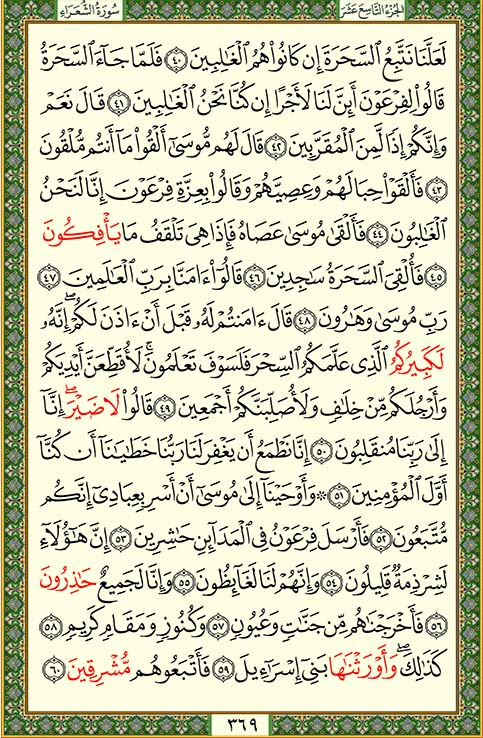 سُورَةُ الشُّعَرَاءِ الجُزْءُ التَّاسِعَ عَشَرَ
لَعَلَّنَا نَتَّبِعُ ٱلسَّحَرَةَ إِن كَانُوا۟ هُمُ ٱلْغَٰلِبِينَ ٤٠ فَلَمَّا جَآءَ ٱلسَّحَرَةُ
قَالُوا۟ لِفِرْعَوْنَ أَئِنَّ لَنَا لَأَجْرًا إِن كُنَّا نَحْنُ ٱلْغَٰلِبِينَ ٤١ قَالَ نَعَمْ
وَإِنَّكُمْ إِذًا لَّمِنَ ٱلْمُقَرَّبِينَ ٤٢ قَالَ لَهُم مُّوسَىٰٓ أَلْقُوا۟ مَآ أَنتُم مُّلْقُونَ
٤٣ فَأَلْقَوْا۟ حِبَالَهُمْ وَعِصِيَّهُمْ وَقَالُوا۟ بِعِزَّةِ فِرْعَوْنَ إِنَّا لَنَحْنُ
ٱلْغَٰلِبُونَ ٤٤ فَأَلْقَىٰ مُوسَىٰ عَصَاهُ فَإِذَا هِىَ تَلْقَفُ مَا يَأْفِكُونَ
٤٥ فَأُلْقِىَ ٱلسَّحَرَةُ سَٰجِدِينَ ٤٦ قَالُوٓا۟ ءَامَنَّا بِرَبِّ ٱلْعَٰلَمِينَ ٤٧
رَبِّ مُوسَىٰ وَهَٰرُونَ ٤٨ قَالَ ءَامَنتُمْ لَهُۥ قَبْلَ أَنْ ءَاذَنَ لَكُمْ ۖ إِنَّهُۥ
لَكَبِيرُكُمُ ٱلَّذِى عَلَّمَكُمُ ٱلسِّحْرَ فَلَسَوْفَ تَعْلَمُونَ ۚ لَأُقَطِّعَنَّ أَيْدِيَكُمْ
وَأَرْجُلَكُم مِّنْ خِلَٰفٍ وَلَأُصَلِّبَنَّكُمْ أَجْمَعِينَ ٤٩ قَالُوا۟ لَا ضَيْرَ ۖ إِنَّآ
إِلَىٰ رَبِّنَا مُنقَلِبُونَ ٥٠ إِنَّا نَطْمَعُ أَن يَغْفِرَ لَنَا رَبُّنَا خَطَٰيَٰنَآ أَن كُنَّآ
أَوَّلَ ٱلْمُؤْمِنِينَ ٥١ ۞ وَأَوْحَيْنَآ إِلَىٰ مُوسَىٰٓ أَنْ أَسْرِ بِعِبَادِىٓ إِنَّكُم
مُّتَّبَعُونَ ٥٢ فَأَرْسَلَ فِرْعَوْنُ فِى ٱلْمَدَآئِنِ حَٰشِرِينَ ٥٣ إِنَّ هَٰٓؤُلَآءِ
لَشِرْذِمَةٌ قَلِيلُونَ ٥٤ وَإِنَّهُمْ لَنَا لَغَآئِظُونَ ٥٥ وَإِنَّا لَجَمِيعٌ حَٰذِرُونَ
٥٦ فَأَخْرَجْنَٰهُم مِّن جَنَّٰتٍ وَعُيُونٍ ٥٧ وَكُنُوزٍ وَمَقَامٍ كَرِيمٍ ٥٨
كَذَٰلِكَ ۖ وَأَوْرَثْنَٰهَا بَنِىٓ إِسْرَٰٓءِيلَ ٥٩ فَأَتْبَعُوهُم مُّشْرِقِينَ ٦٠
٣٦٩